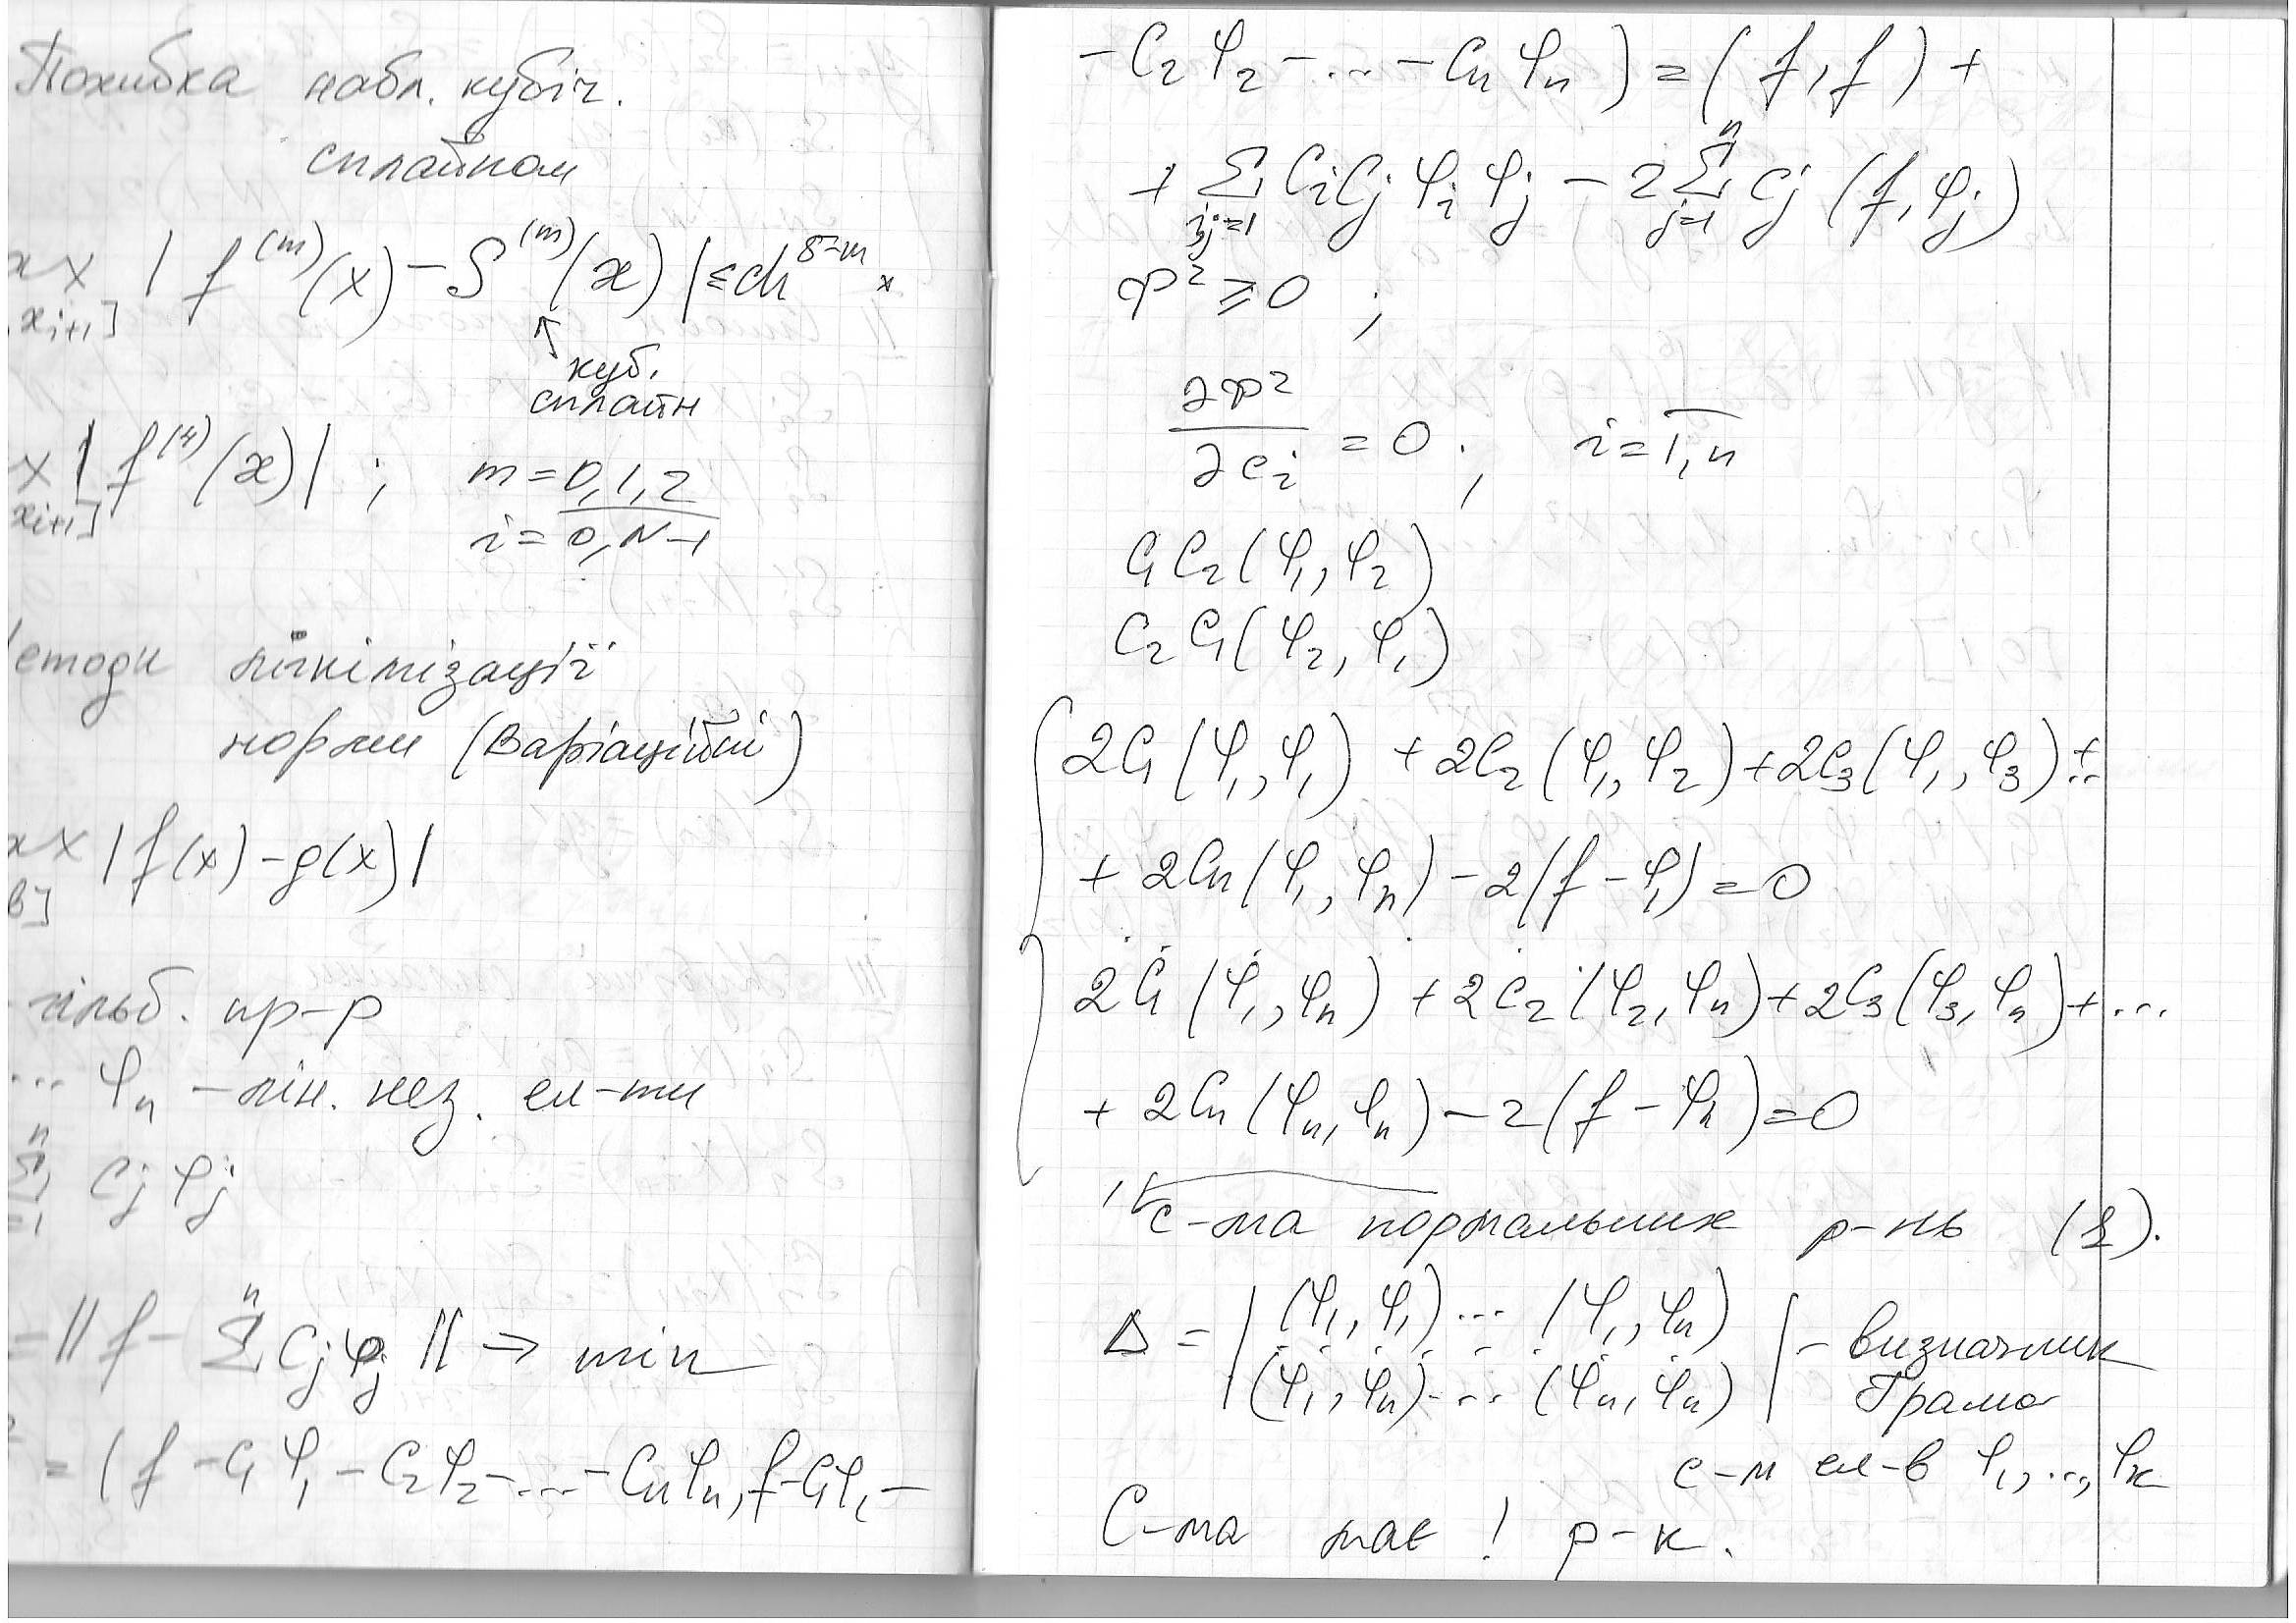 Похибка набл. кубіч.
сплайном
ax | f^(m)(x) - S^(m)(x) | ≤ ch^5-m ×
x_i+1]
↖ куб.
сплайн
x | f^(4)(x) | ; m = 0,1,2
x_i+1] i = 0,N-1
етоди мінімізації
норми (Варіаційні)
ax | f(x) - g(x) |
в]
гільб. пр-р
... φ_n - лін. нез. ел-ти
n
Σ C_j φ_j
=1
= || f - Σ^n C_j φ_j || → min
² = ( f - C_1 φ_1 - C_2 φ_2 - ... - C_n φ_n, f - C_1 φ_1 -
- C_2 φ_2 - ... - C_n φ_n ) = ( f, f ) +
+ Σ_i,j=1 C_i C_j φ_i φ_j - 2 Σ_j=1^n C_j ( f, φ_j )
Φ² ⩾ 0 ;
∂Φ²/∂c_i = 0 ; i = 1,n
C_1 C_2 ( φ_1, φ_2 )
C_2 C_1 ( φ_2, φ_1 )
2C_1 ( φ_1, φ_1 ) + 2C_2 ( φ_1, φ_2 ) + 2C_3 ( φ_1, φ_3 ) + ..
+ 2C_n ( φ_1, φ_n ) - 2 ( f - φ_1 ) = 0
. . . . . .
2C_1 ( φ_1, φ_n ) + 2C_2 ( φ_2, φ_n ) + 2C_3 ( φ_3, φ_n ) + ...
+ 2C_n ( φ_n, φ_n ) - 2 ( f - φ_n ) = 0
с-ма нормальних р-нь (2).
Δ = | ( φ_1, φ_1 ) ... ( φ_1, φ_n ) | - визначник
( φ_1, φ_n ) ... ( φ_n, φ_n ) Грама
с-м ел-в φ_1, ..., φ_n
С-ма має ! р-к.